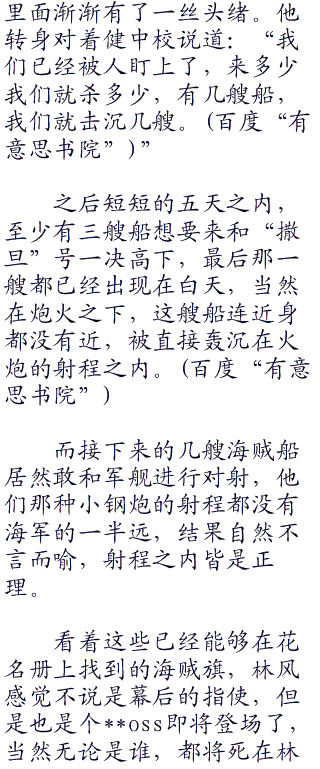 里面渐渐有了一丝头绪。他
转身对着健中校说道：“我
们已经被人盯上了，来多少
我们就杀多少，有几艘船，
我们就去沉几艘。(百度“有
意思书院”)”
之后短短的五天之内，
至少有三艘船想要来和“撒
旦”号一决高下，最后那一
艘都已经出现在白天，当然
在炮火之下，这艘船连近身
都没有近，被直接轰沉在火
炮的射程之内。(百度“有意
思书院”)
而接下来的几艘海贼船
居然敢和军舰进行对射，他
们那种小钢炮的射程都没有
海军的一半远，结果自然不
言而喻，射程之内皆是正
理。
看着这些已经能够在花
名册上找到的海贼旗，林风
感觉不说是幕后的指使，但
是也是个**oss即将登场了，
当然无论是谁，都将死在林